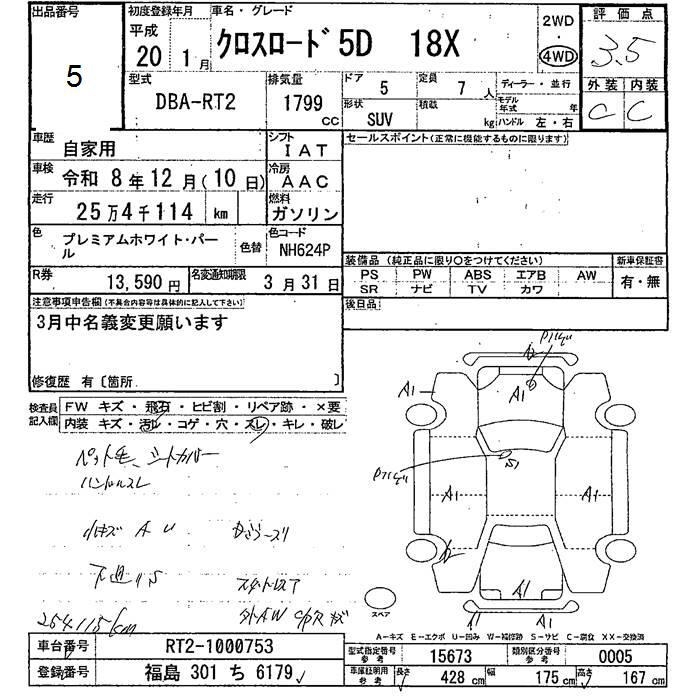 出品番号
5
初度登録年月
平成
20 1月
車名・グレード
クロスロード 5D 18X
2WD
・
4WD
評価点
3.5
外装 内装
C C
型式
DBA-RT2
排気量
1799
CC
ドア
5
定員
7人
形状
SUV
積載
kg
ディーラー・並行
モデル年式 年
ハンドル 左・右
車歴
自家用
シフト
IAT
車検
令和 8年12月(10日)
冷房
AAC
走行
25万4千114 km
燃料
ガソリン
色
プレミアムホワイト・パール
色替
色コード
NH624P
R券
13,590円
名変通知期限
3月31日
セールスポイント(正常に機能するものに限ります)
装備品(純正品に限り○をつけてください)
PS PW ABS エアB AW
SR ナビ TV カワ
新車保証書
有・無
後日品
注意事項申告欄(不具合内容等は具体的に記入して下さい)
3月中名義変更願います
修復歴 有〔箇所 〕
検査員記入欄
FW キズ・飛石・ヒビ割・リペア跡・×要
内装 キズ・汚レ・コゲ・穴・スレ・キレ・破レ
ペット毛、シートカバー
ハンドルスレ
小キズ A U
スタットレスT
254115km
A1
A1
S1
A1
A1
A1
スペア
A-キズ E-エクボ U-凹み W-補修跡 S-サビ C-腐食 XX-交換済
車台番号
RT2-1000753
登録番号
福島 301 ち 6179
型式指定番号
参考
15673
類別区分番号
参考
0005
車庫証明用
参考
長さ
428 cm
幅
175 cm
高さ
167 cm